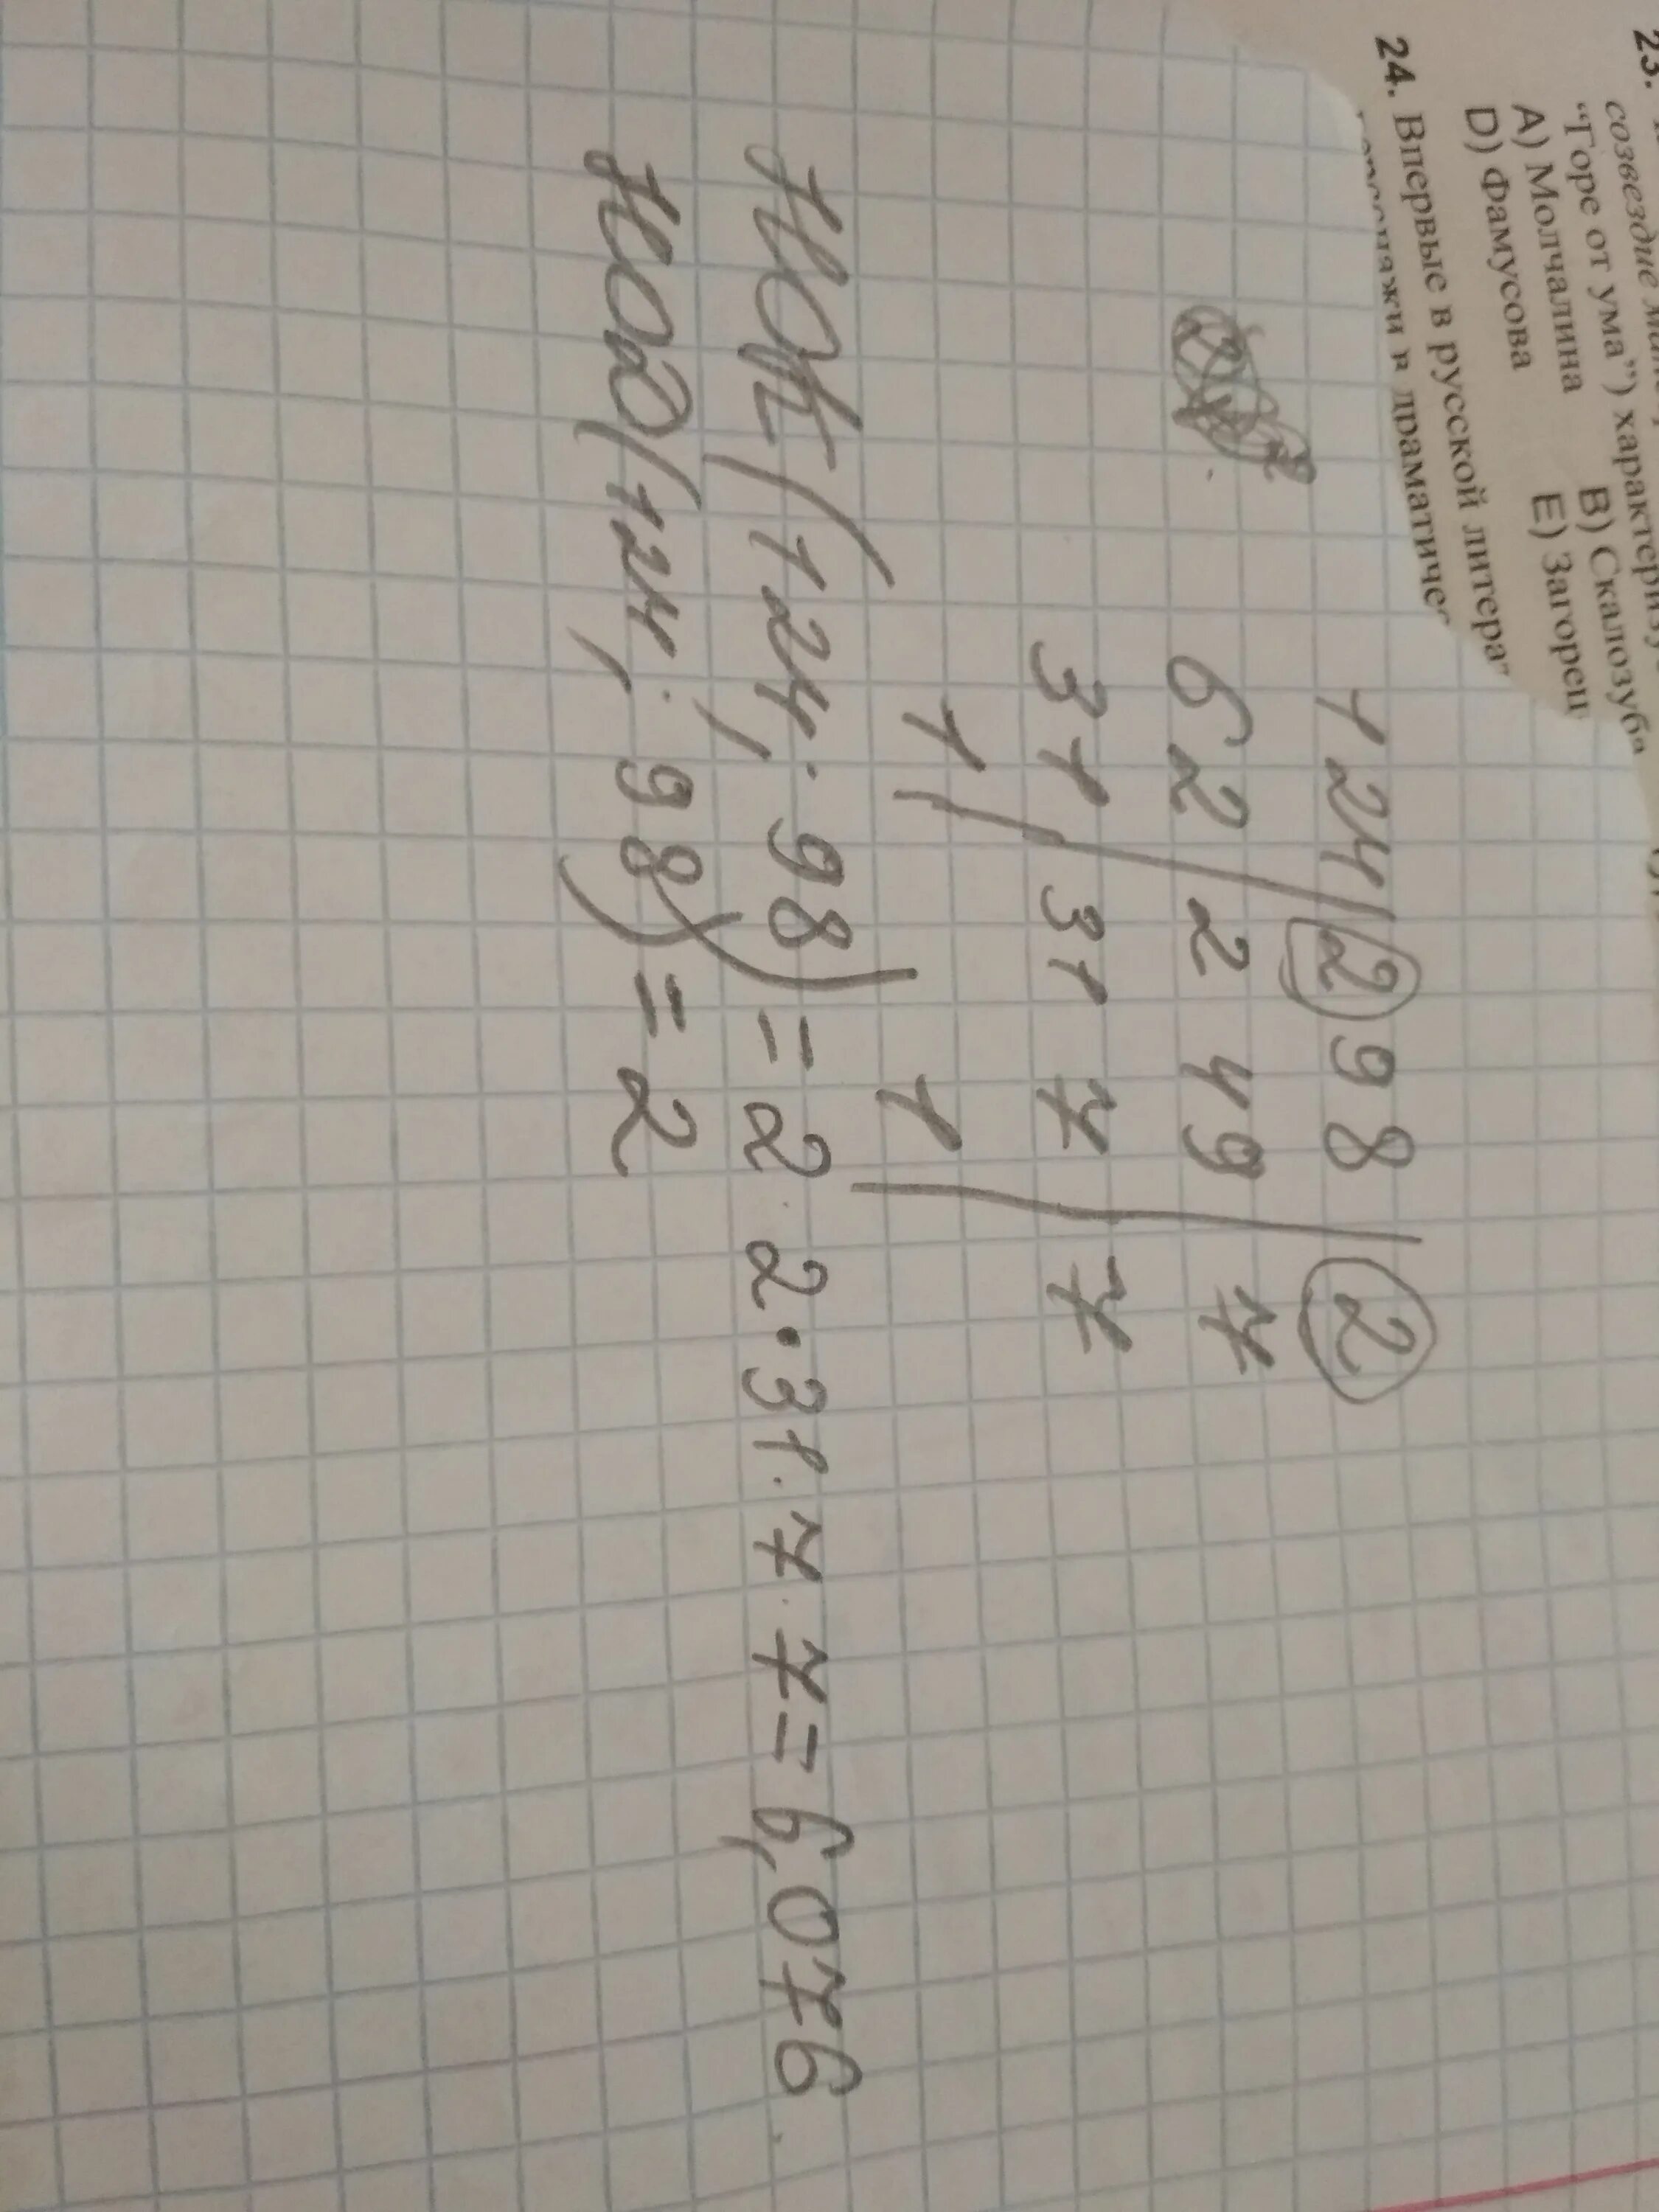 23.
созвездие
“Горе от ума”) характеризу
A) Молчалина B) Скалозуба
D) Фамусова E) Загорец
24. Впервые в русской литера
в драматичес
124 | 2 98 | 2
62 2 49 7
31 31 7 7
1 1
НОК (124; 98) = 2 · 2 · 31 · 7 · 7 = 6,076
НОД (124; 98) = 2